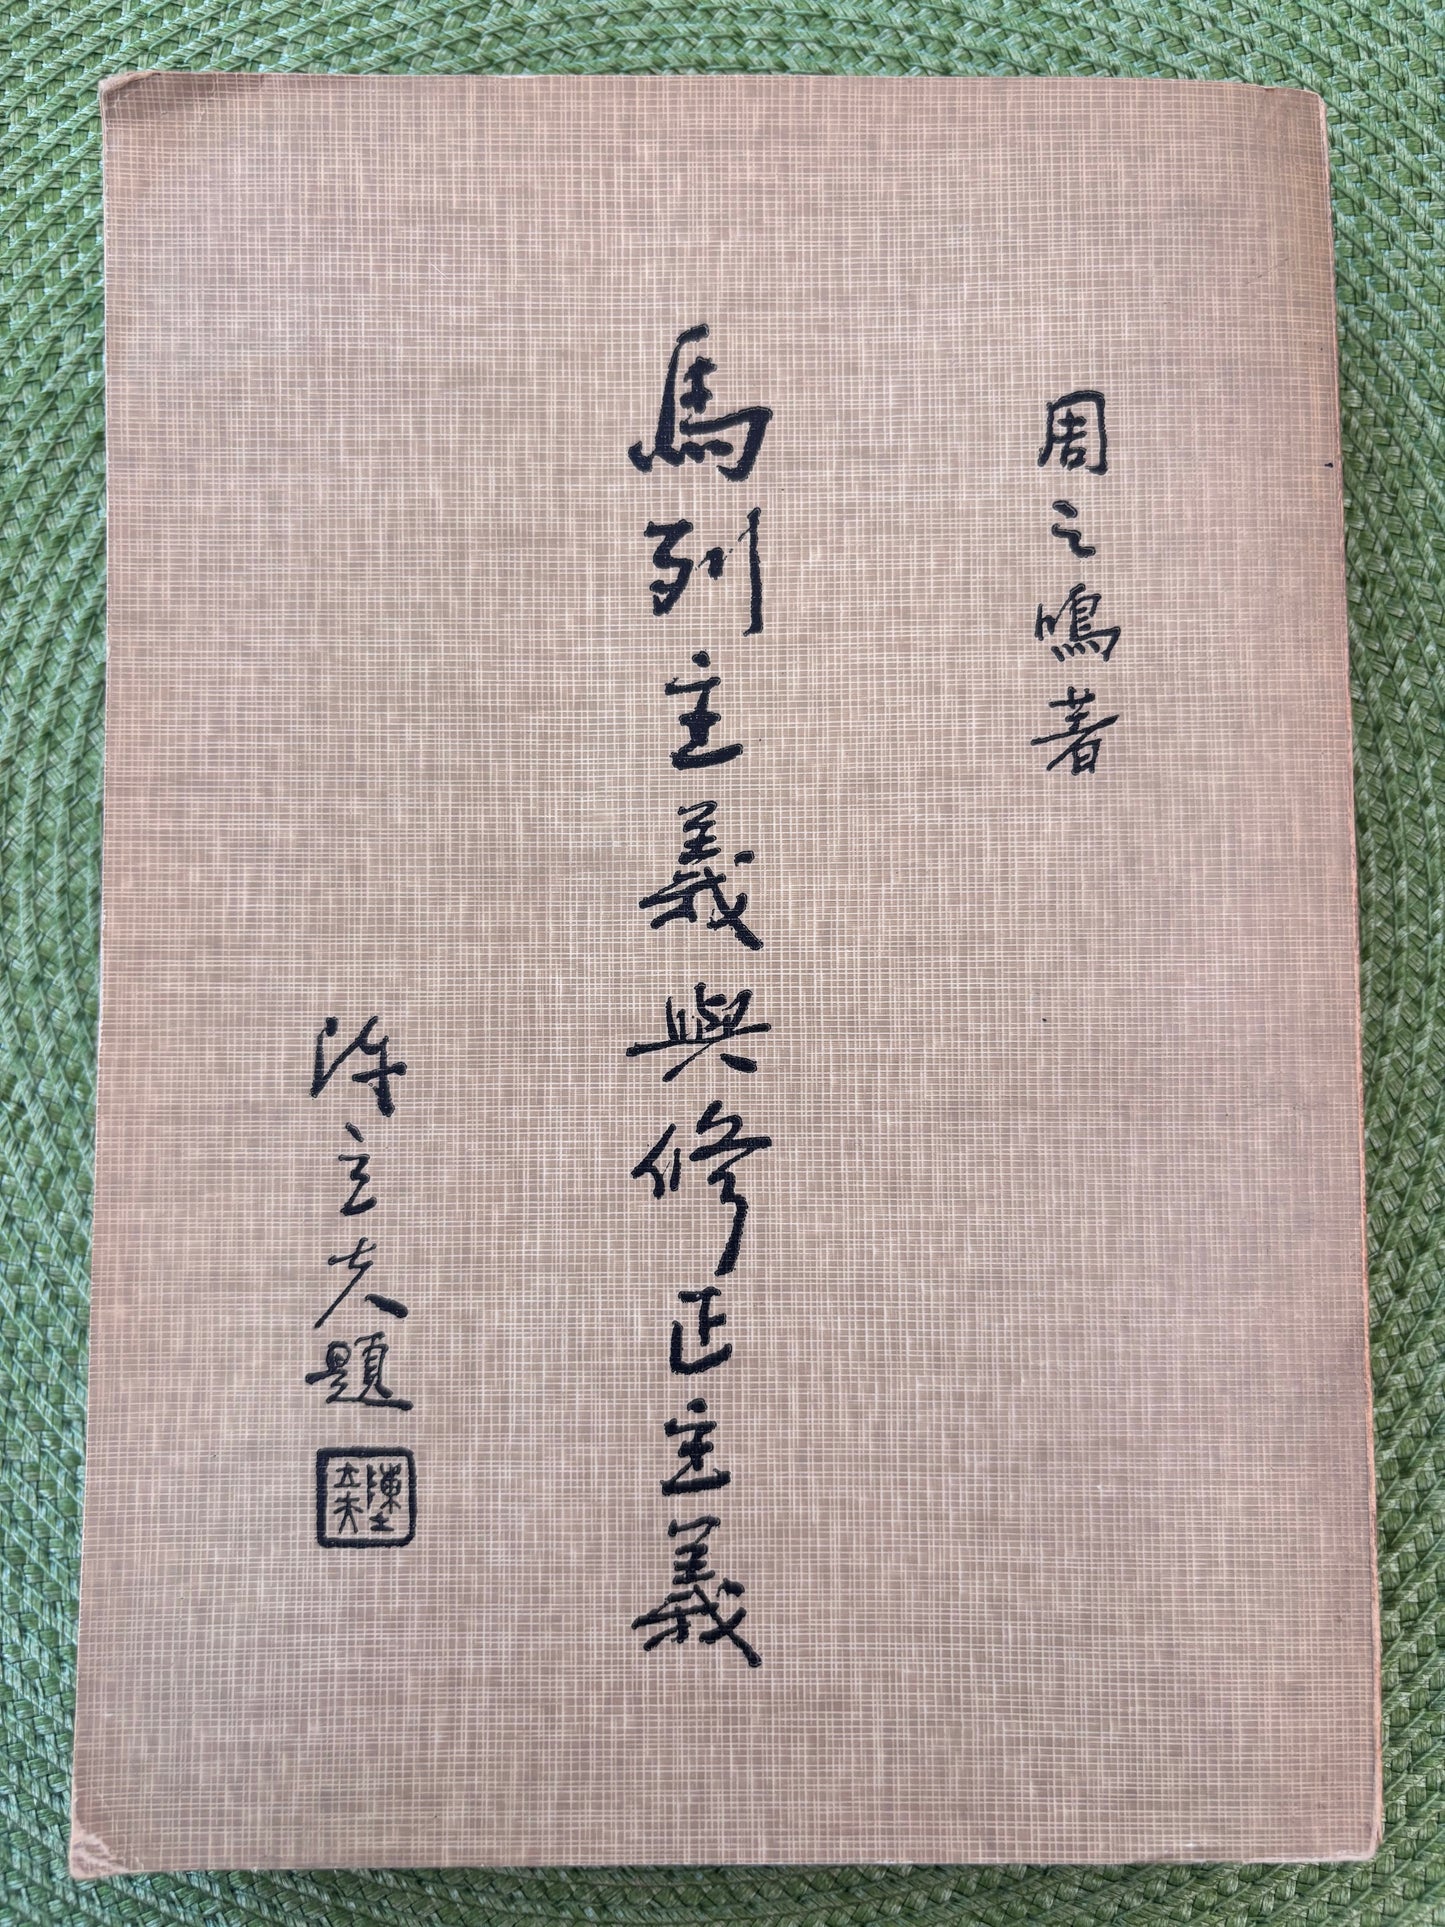 周之鳴著
馬列主義與修正主義
陳立夫題
陳立夫